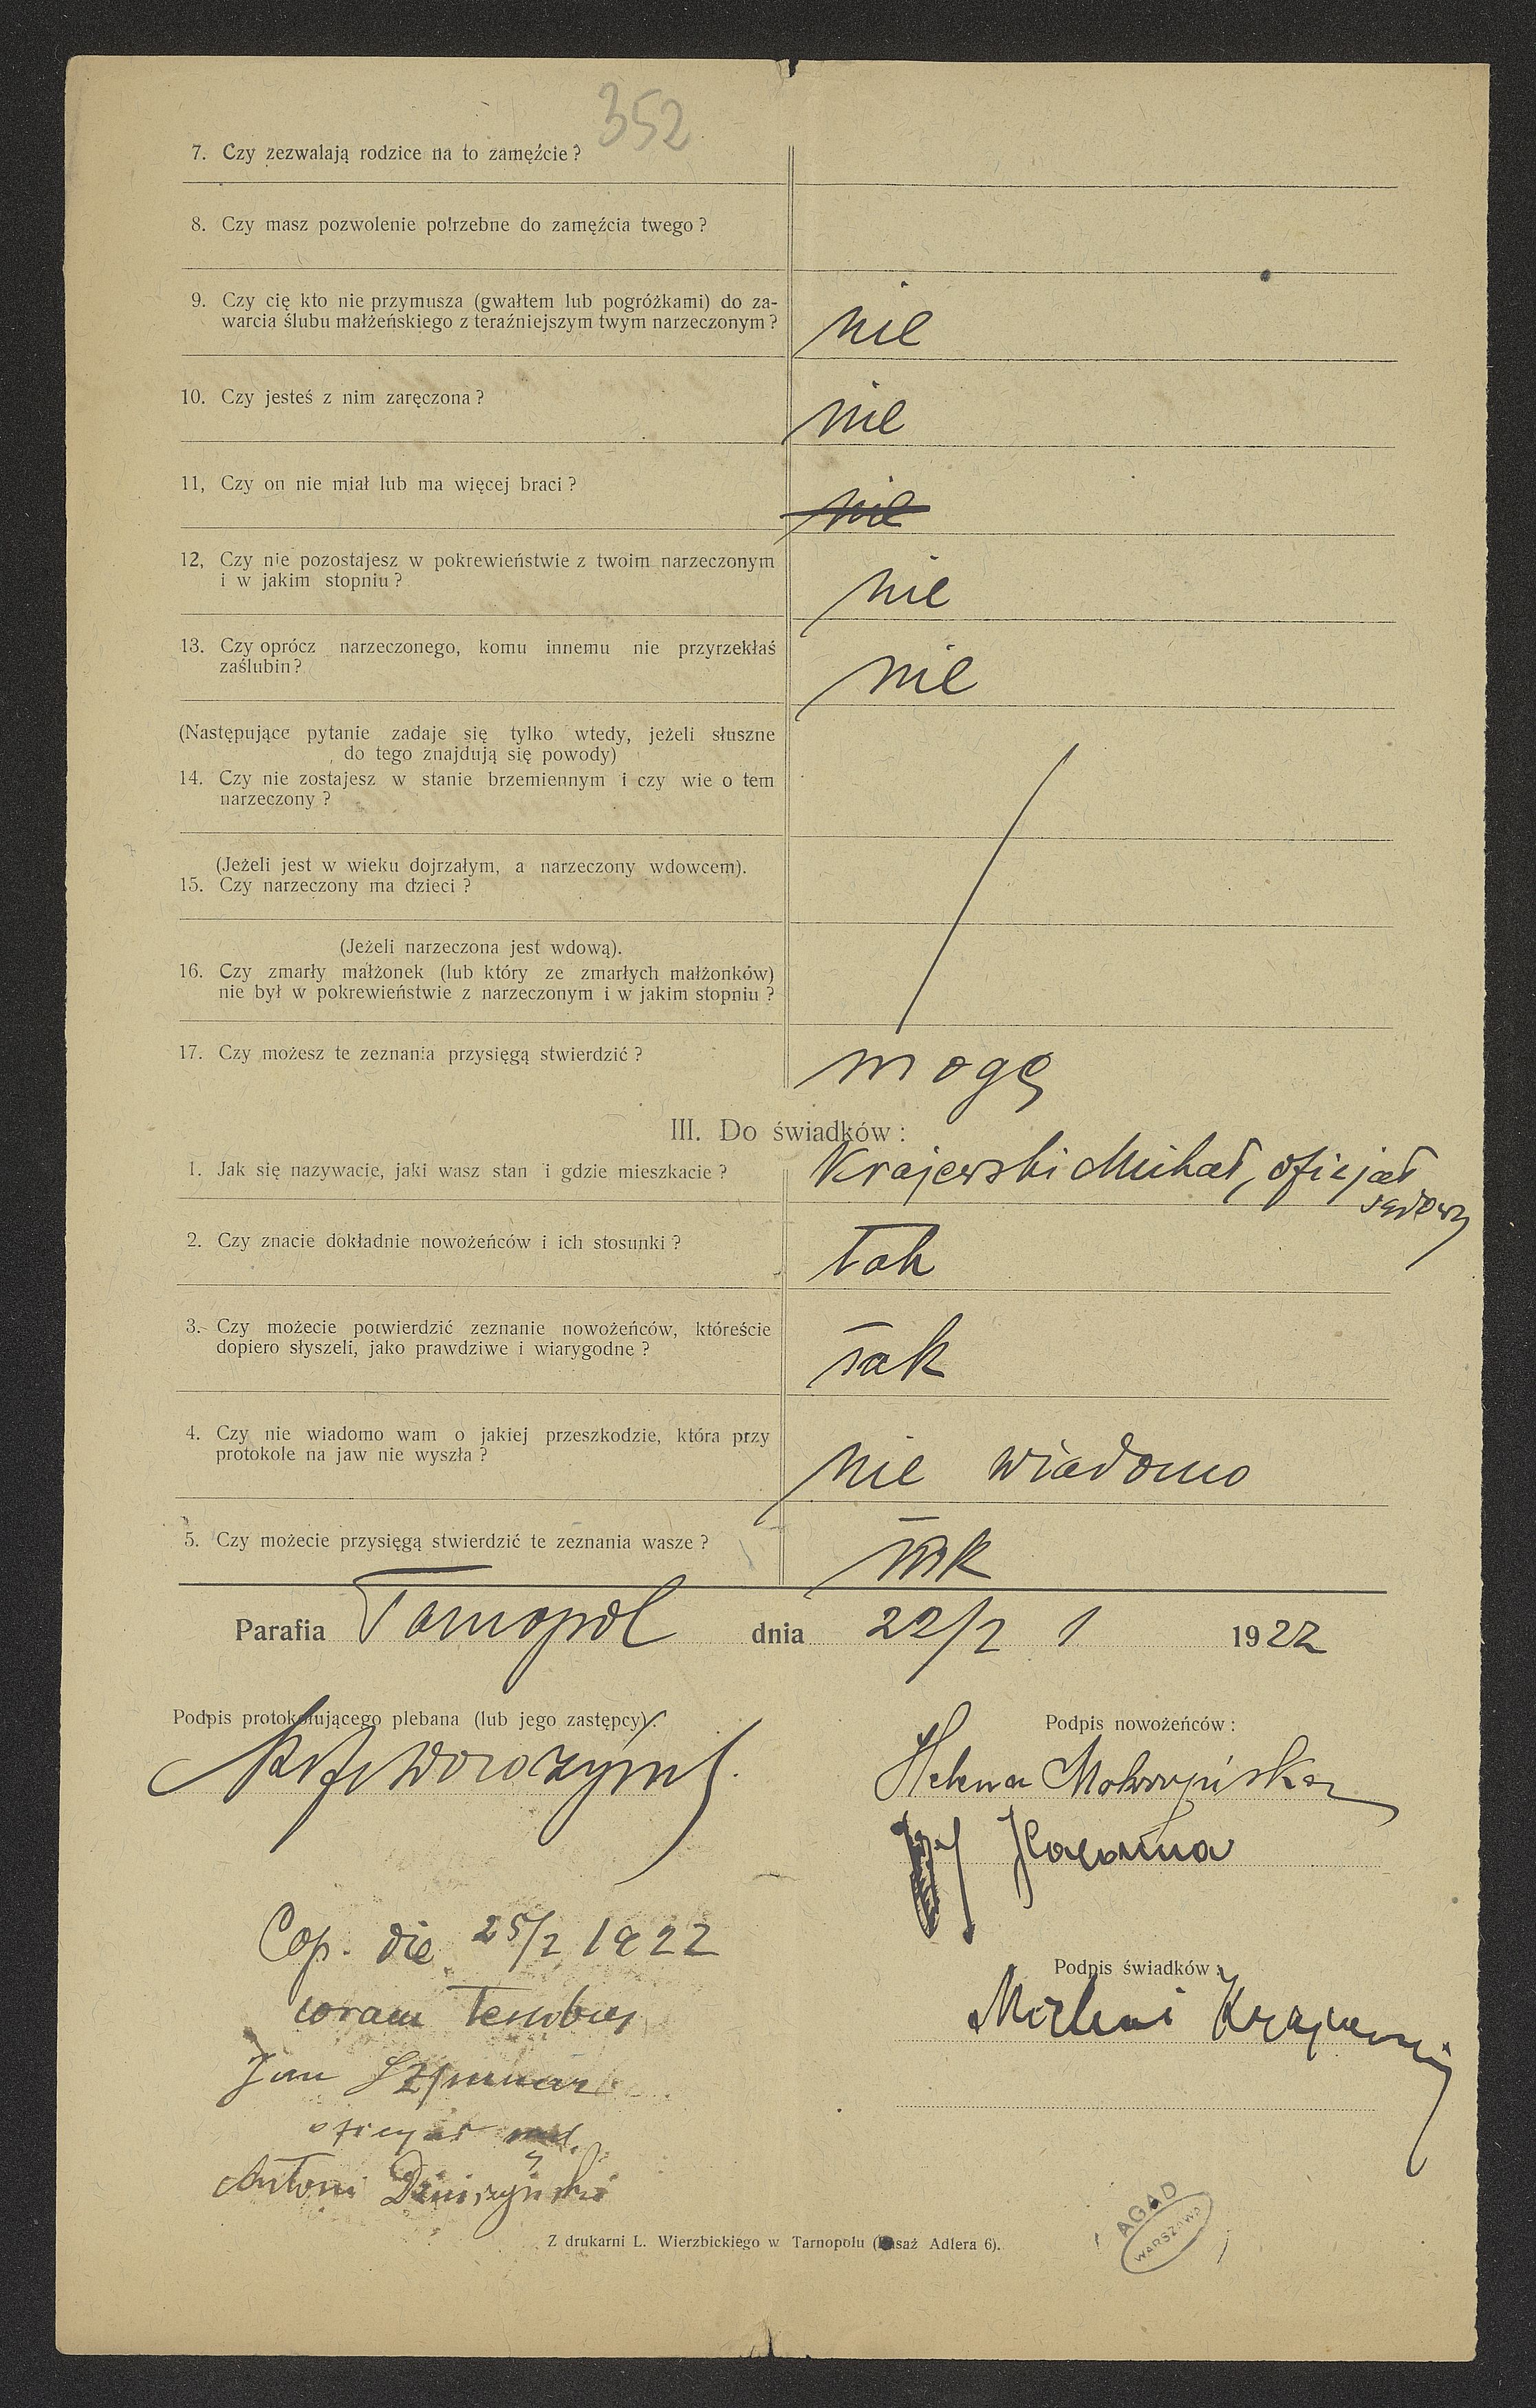 352
7. Czy zezwalają rodzice na to zamęźcie?
8. Czy masz pozwolenie potrzebne do zamęźcia twego?
9. Czy cię kto nie przymusza (gwałtem lub pogróżkami) do za-
warcia ślubu małżeńskiego z teraźniejszym twym narzeczonym?
nie
10. Czy jesteś z nim zaręczona?
nie
11, Czy on nie miał lub ma więcej braci?
nie
12, Czy nie pozostajesz w pokrewieństwie z twoim narzeczonym
i w jakim stopniu?
nie
13. Czy oprócz narzeczonego, komu innemu nie przyrzekłaś
zaślubin?
nie
(Następujące pytanie zadaje się tylko wtedy, jeżeli słuszne
do tego znajdują się powody)
14. Czy nie zostajesz w stanie brzemiennym i czy wie o tem
narzeczony?
(Jeżeli jest w wieku dojrzałym, a narzeczony wdowcem).
15. Czy narzeczony ma dzieci?
(Jeżeli narzeczona jest wdową).
16. Czy zmarły małżonek (lub który ze zmarłych małżonków)
nie był w pokrewieństwie z narzeczonym i w jakim stopniu?
17. Czy możesz te zeznania przysięgą stwierdzić?
mogę
III. Do świadków:
1. Jak się nazywacie, jaki wasz stan i gdzie mieszkacie?
Krajewski Michał, oficjał
sądowy
2. Czy znacie dokładnie nowożeńców i ich stosunki?
tak
3. Czy możecie potwierdzić zeznanie nowożeńców, któreście
dopiero słyszeli, jako prawdziwe i wiarygodne?
tak
4. Czy nie wiadomo wam o jakiej przeszkodzie, która przy
protokole na jaw nie wyszła?
nie wiadomo
5. Czy możecie przysięgą stwierdzić te zeznania wasze?
tak
Parafia Tarnopol dnia 22/2 1 1922
Podpis protokołującego plebana (lub jego zastępcy):
Podpis nowożeńców:
Helena
Podpis świadków:
Krajewski
Cop. die 25/2 1922
coram testibus
Jan
oficjał
Antoni
Z drukarni L. Wierzbickiego w Tarnopolu (Pasaż Adlera 6).
AGAD
WARSZAWA